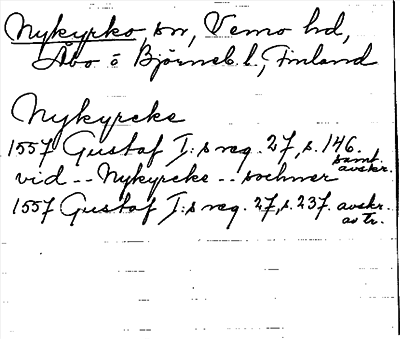 Nykyrko, sn, Vemo hd,
Åbo o Björneb. l., Finland
Nykyrcke
1557 Gustaf I:s reg. 27, s. 146. samt. avskr.
vid -- Nykyrcke -- sochner
1557 Gustaf I:s reg. 27, s. 237. avskr. av tr.